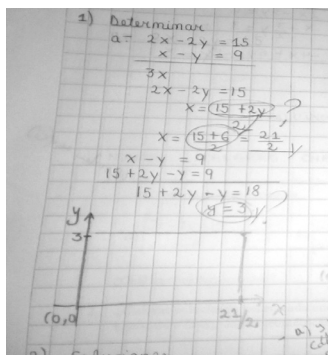 1) Determinar
a= 2x-2y = 15
x - y = 9
3x
2x - 2y = 15
x = 15 + 2y / 2 ?
x = 15 + 6 / 2 = 21 / 2 y
x - y = 9
15 + 2y - y = 9
15 + 2y - y = 18
y = 3 y ?
y
3
(0,0)
21/2
x
a) y